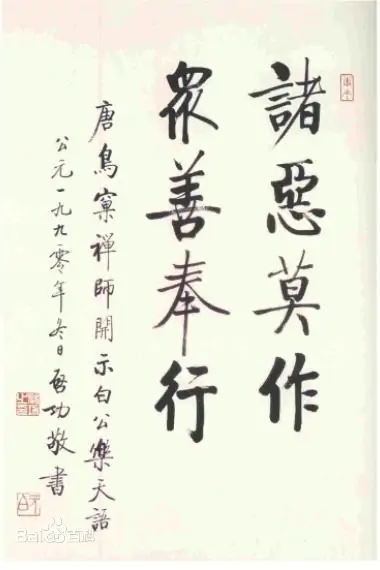 諸惡莫作
眾善奉行
唐鳥窠禅師開示白公樂天語
公元一九九零年冬日啓功敬書
Bai百科